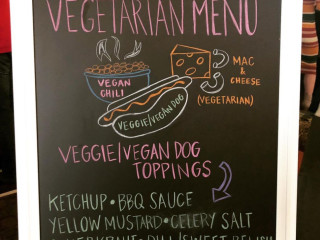 VEGETARIAN MENU
VEGAN
CHILI
MAC
&
CHEESE
(VEGETARIAN)
VEGGIE/VEGAN DOG
VEGGIE/VEGAN DOG
TOPPINGS
KETCHUP • BBQ SAUCE
YELLOW MUSTARD • CELERY SALT
SAUERKRAUT • DILL/SWEET RELISH